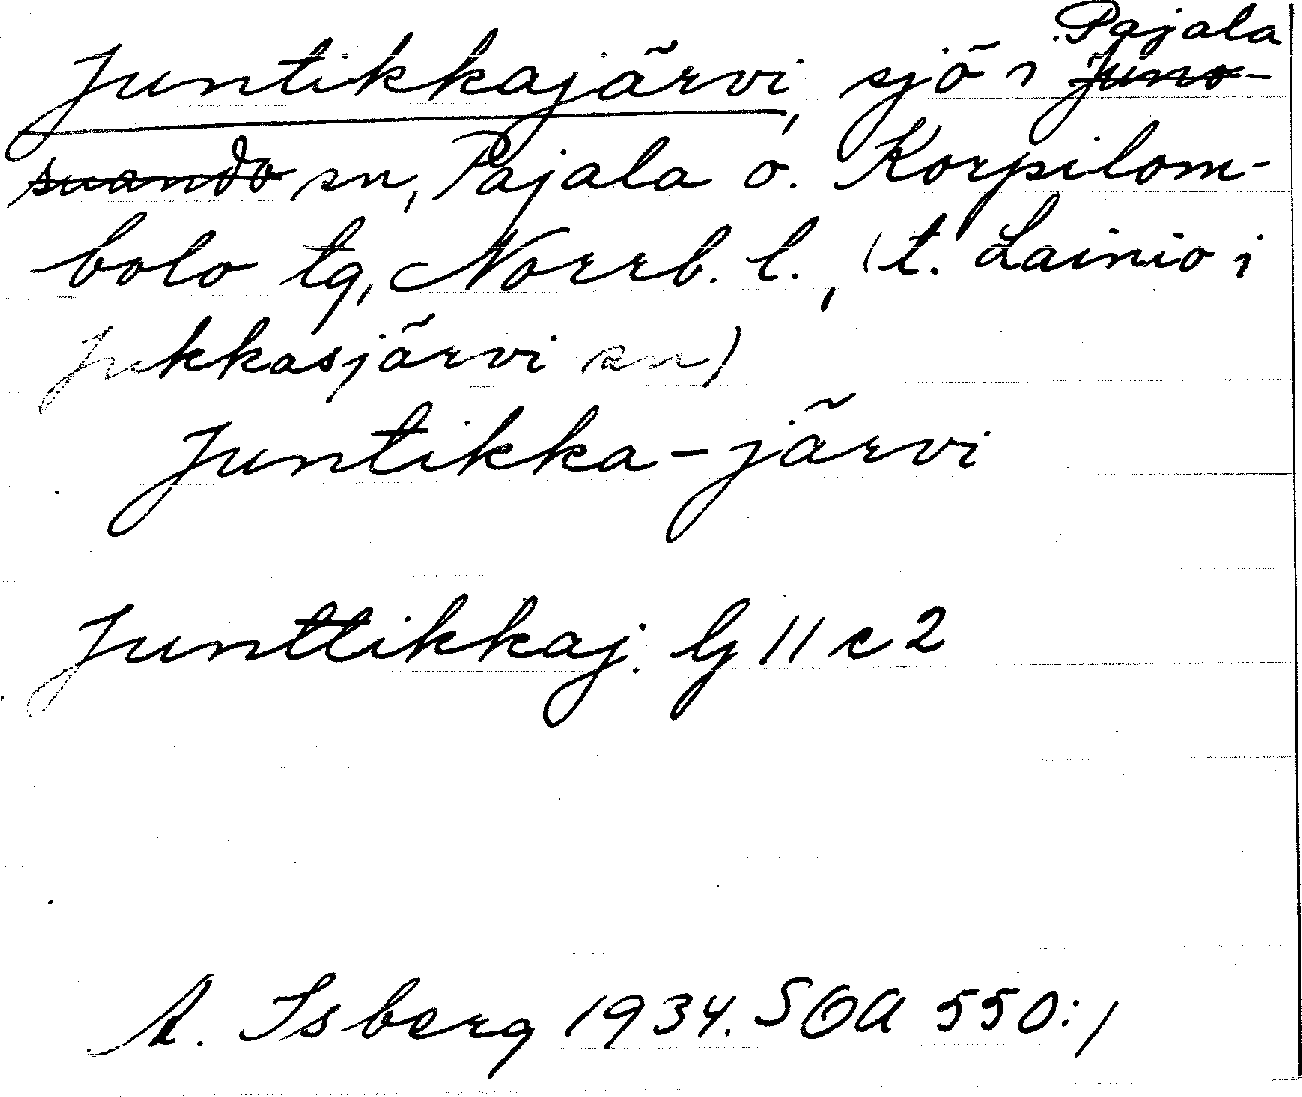 Pajala
Juntikkajärvi, sjö i Juno-
suando sn, Pajala o. Korpilom-
bolo tg, Norrb. l., (t. Lainio i
Jukkasjärvi sn)
Juntikka-järvi
Junttikkaj. Gj 11 c 2
A. Isberg 1934. SOA 550:1